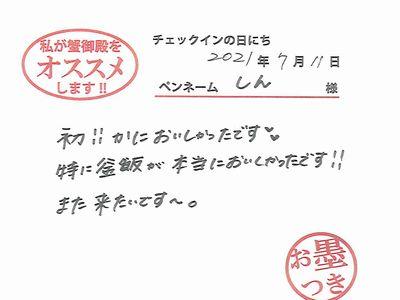 私が蟹御殿を
オススメ
します!!
チェックインの日にち
2021年7月11日
ペンネーム しん 様
初!! かにおいしかったです♡♡
特に釜飯が本当においしかったです!!
また来たいです〜。
お墨
つき